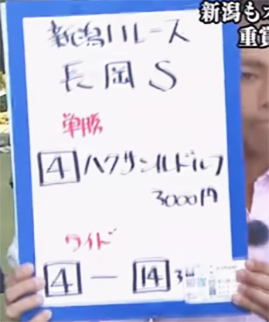 新潟も
重賞
新潟11レース
長岡S
単勝
4 ハクサンルドルフ
3000円
ワイド
4 ー 14 3